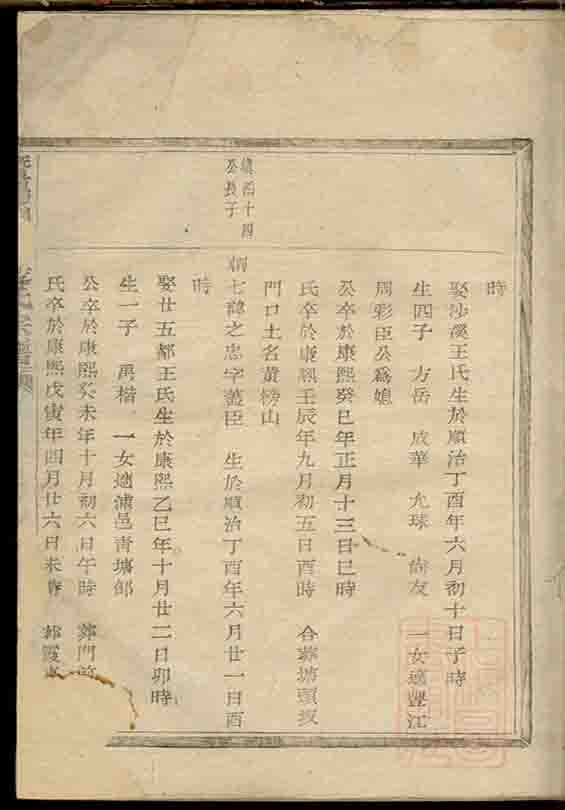 時
娶沙溪王氏生於順治丁酉年六月初十日子時
生四子 方岳 成華 允球 尙友 一女適豐江
周彩臣公爲媳
公卒於康熙癸巳年正月十三日巳時
氏卒於康熙壬辰年九月初五日酉時 合葬塘頭坟
門口土名黃榜山
公長子
七諱之忠字藎臣 生於順治丁酉年六月廿一日酉
時
娶廿五都王氏生於康熙乙巳年十月廿二日卯時
生一子 萬楷 一女適浦邑靑塘鄧
公卒於康熙癸未年十月初六日午時 葬門
氏卒於康熙戊寅年四月廿六日未時 葬霞